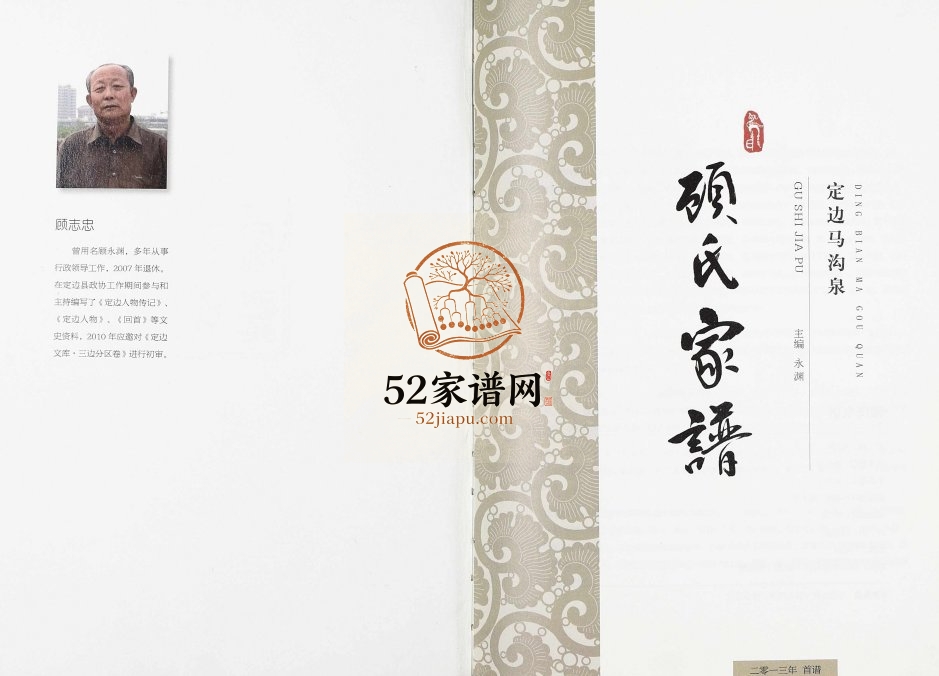 顾志忠
曾用名顾永渊，多年从事
行政领导工作，2007年退休。
在定边县政协工作期间参与和
主持编写了《定边人物传记》、
《定边人物》、《回首》等文
史资料，2010年应邀对《定边
文库·三边分区卷》进行初审。
52家谱网
52jiapu.com
定边马沟泉
DING BIAN MA GOU QUAN
顾氏家譜
GU SHI JIA PU
主编 永渊
二零一三年 首谱